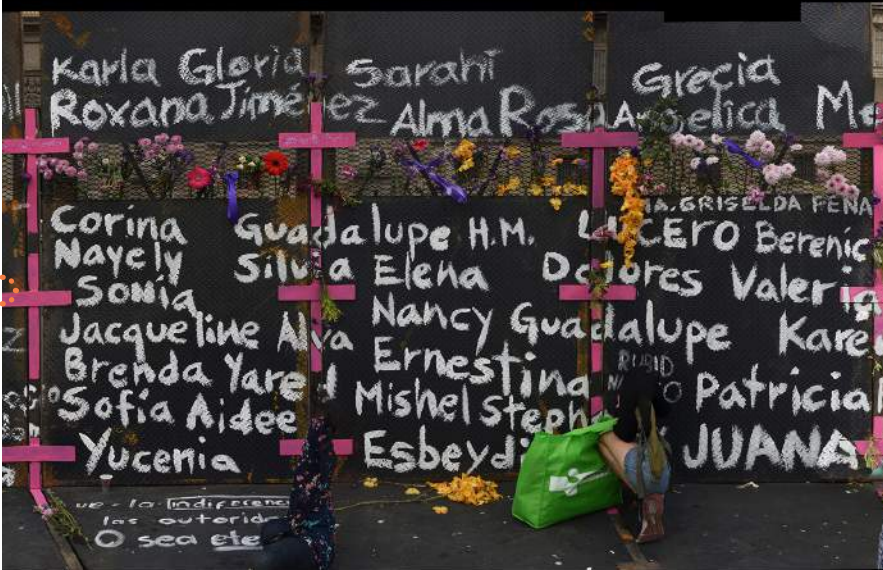 Karla Gloria Sarahí Grecia
Roxana Jiménez Alma Rosa Angelica
MA. GRISELDA PEÑA
Corina Guadalupe H.M. LUCERO Berenic
Nayely Silvia Elena Dolores Valeria
Sonia Nancy Guadalupe Kare
Jacqueline Alva Ernestina RUBID
Brenda Yared Mishel Steph Patricia
Sofía Aidee
Yucenia Esbeydi JUANA
ue la indiferenci
las autorida
O sea ete